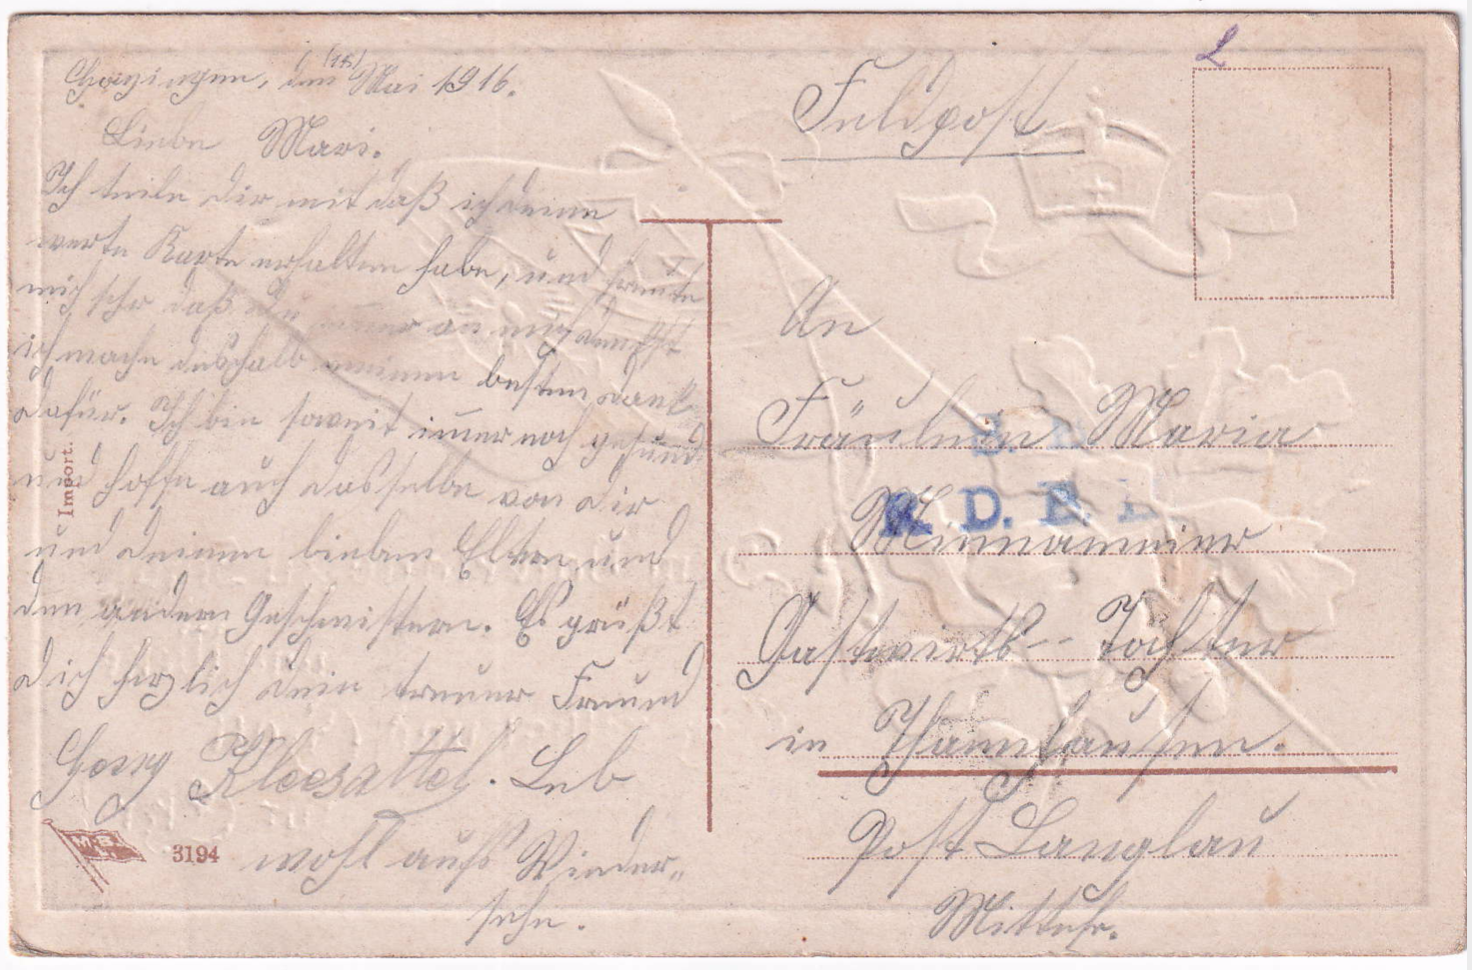 den (15) Mai 1916.
Liebe Mari.
Ich teile dir mit daß ich deine
werte Karte erhalten habe, und freute
mich sehr daß Du immer an mich denkst
ich mache deshalb meinen besten Dank
dafür. Ich bin soweit immer noch gesund
und hoffe auch dasselbe von dir
und deinen lieben Eltern und
den andern Geschwistern. Es grüßt
dich herzlich dein treuer Freund
Georg Kleesattel. Leb
wohl aufs Wieder„
sehn.
Import.
3194
Feldpost
L
An
Fräulein Maria
Gastwirts-Tochter
in
Post Langlau
Mittelfr.
S. B.
K. D. B. L.